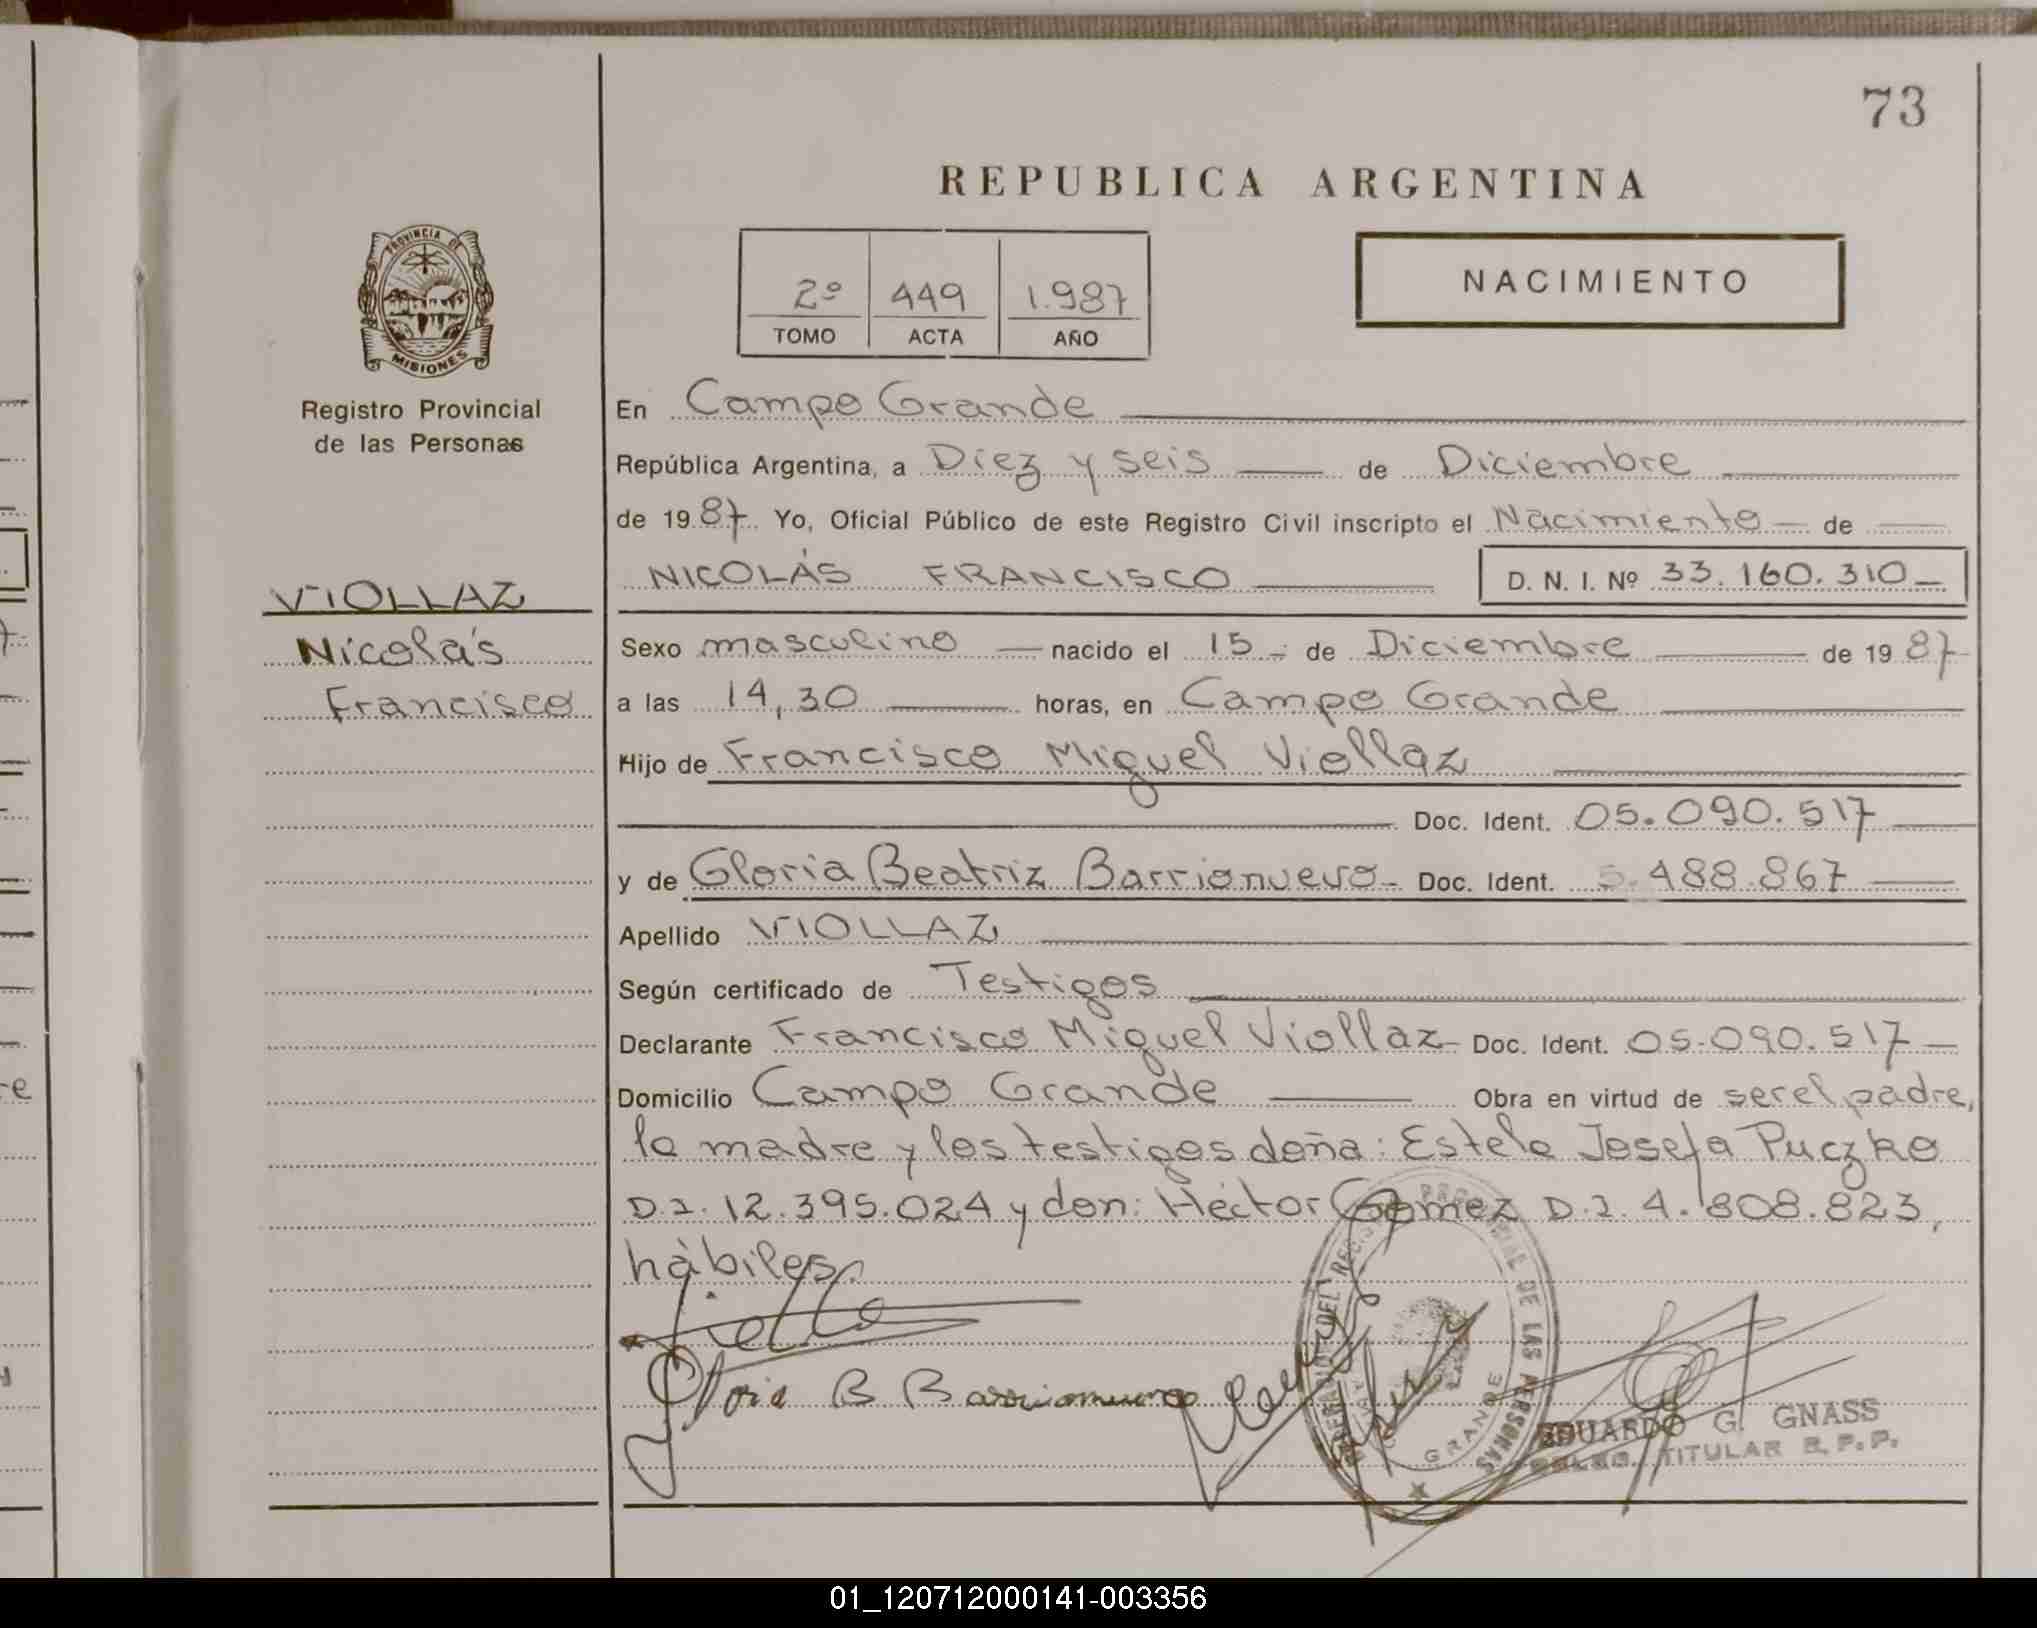 73
REPUBLICA ARGENTINA
PROVINCIA DE
MISIONES
Registro Provincial
de las Personas
2º 449 1.987
TOMO ACTA AÑO
NACIMIENTO
VIOLLAZ
Nicolás
Francisco
En Campo Grande
República Argentina, a Diez y seis de Diciembre
de 1987. Yo, Oficial Público de este Registro Civil inscripto el Nacimiento de
NICOLÁS FRANCISCO D. N. I. Nº 33.160.310
Sexo masculino nacido el 15 de Diciembre de 1987
a las 14,30 horas, en Campo Grande
Hijo de Francisco Miguel Viollaz
Doc. Ident. 05.090.517
y de Gloria Beatriz Barrionuevo Doc. Ident. 5.488.867
Apellido VIOLLAZ
Según certificado de Testigos
Declarante Francisco Miguel Viollaz Doc. Ident. 05.090.517
Domicilio Campo Grande Obra en virtud de ser el padre,
la madre y los testigos doña: Estela Josefa Puczko
D.I. 12.395.024 y don: Héctor Gomez D.I. 4.808.823,
hábiles.
Gloria B Barrionuevo
REGISTRO PROVINCIAL DE LAS PERSONAS
GRANDE
EDUARDO G. GNASS
TITULAR R.P.P.
01_120712000141-003356